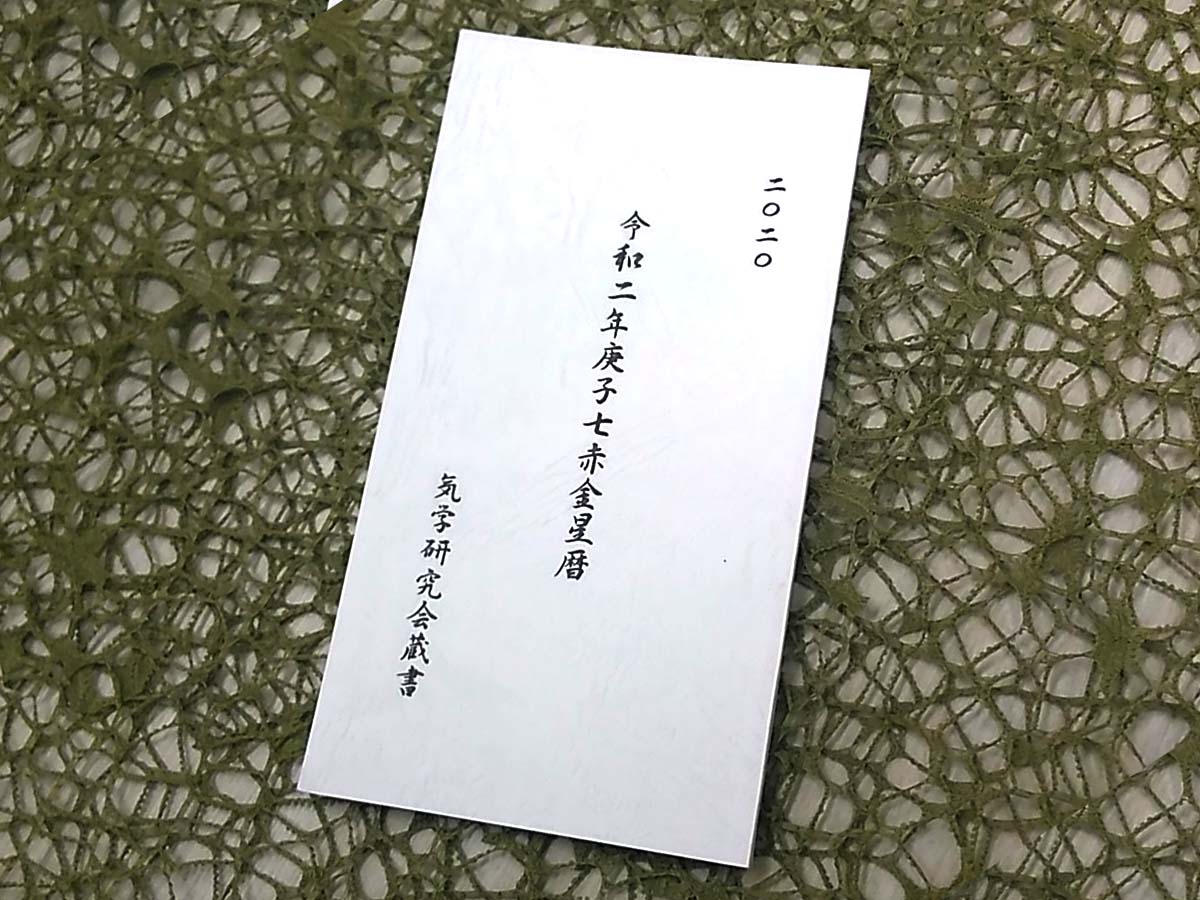 二〇二〇
令和二年庚子七赤金星暦
気学研究会蔵書